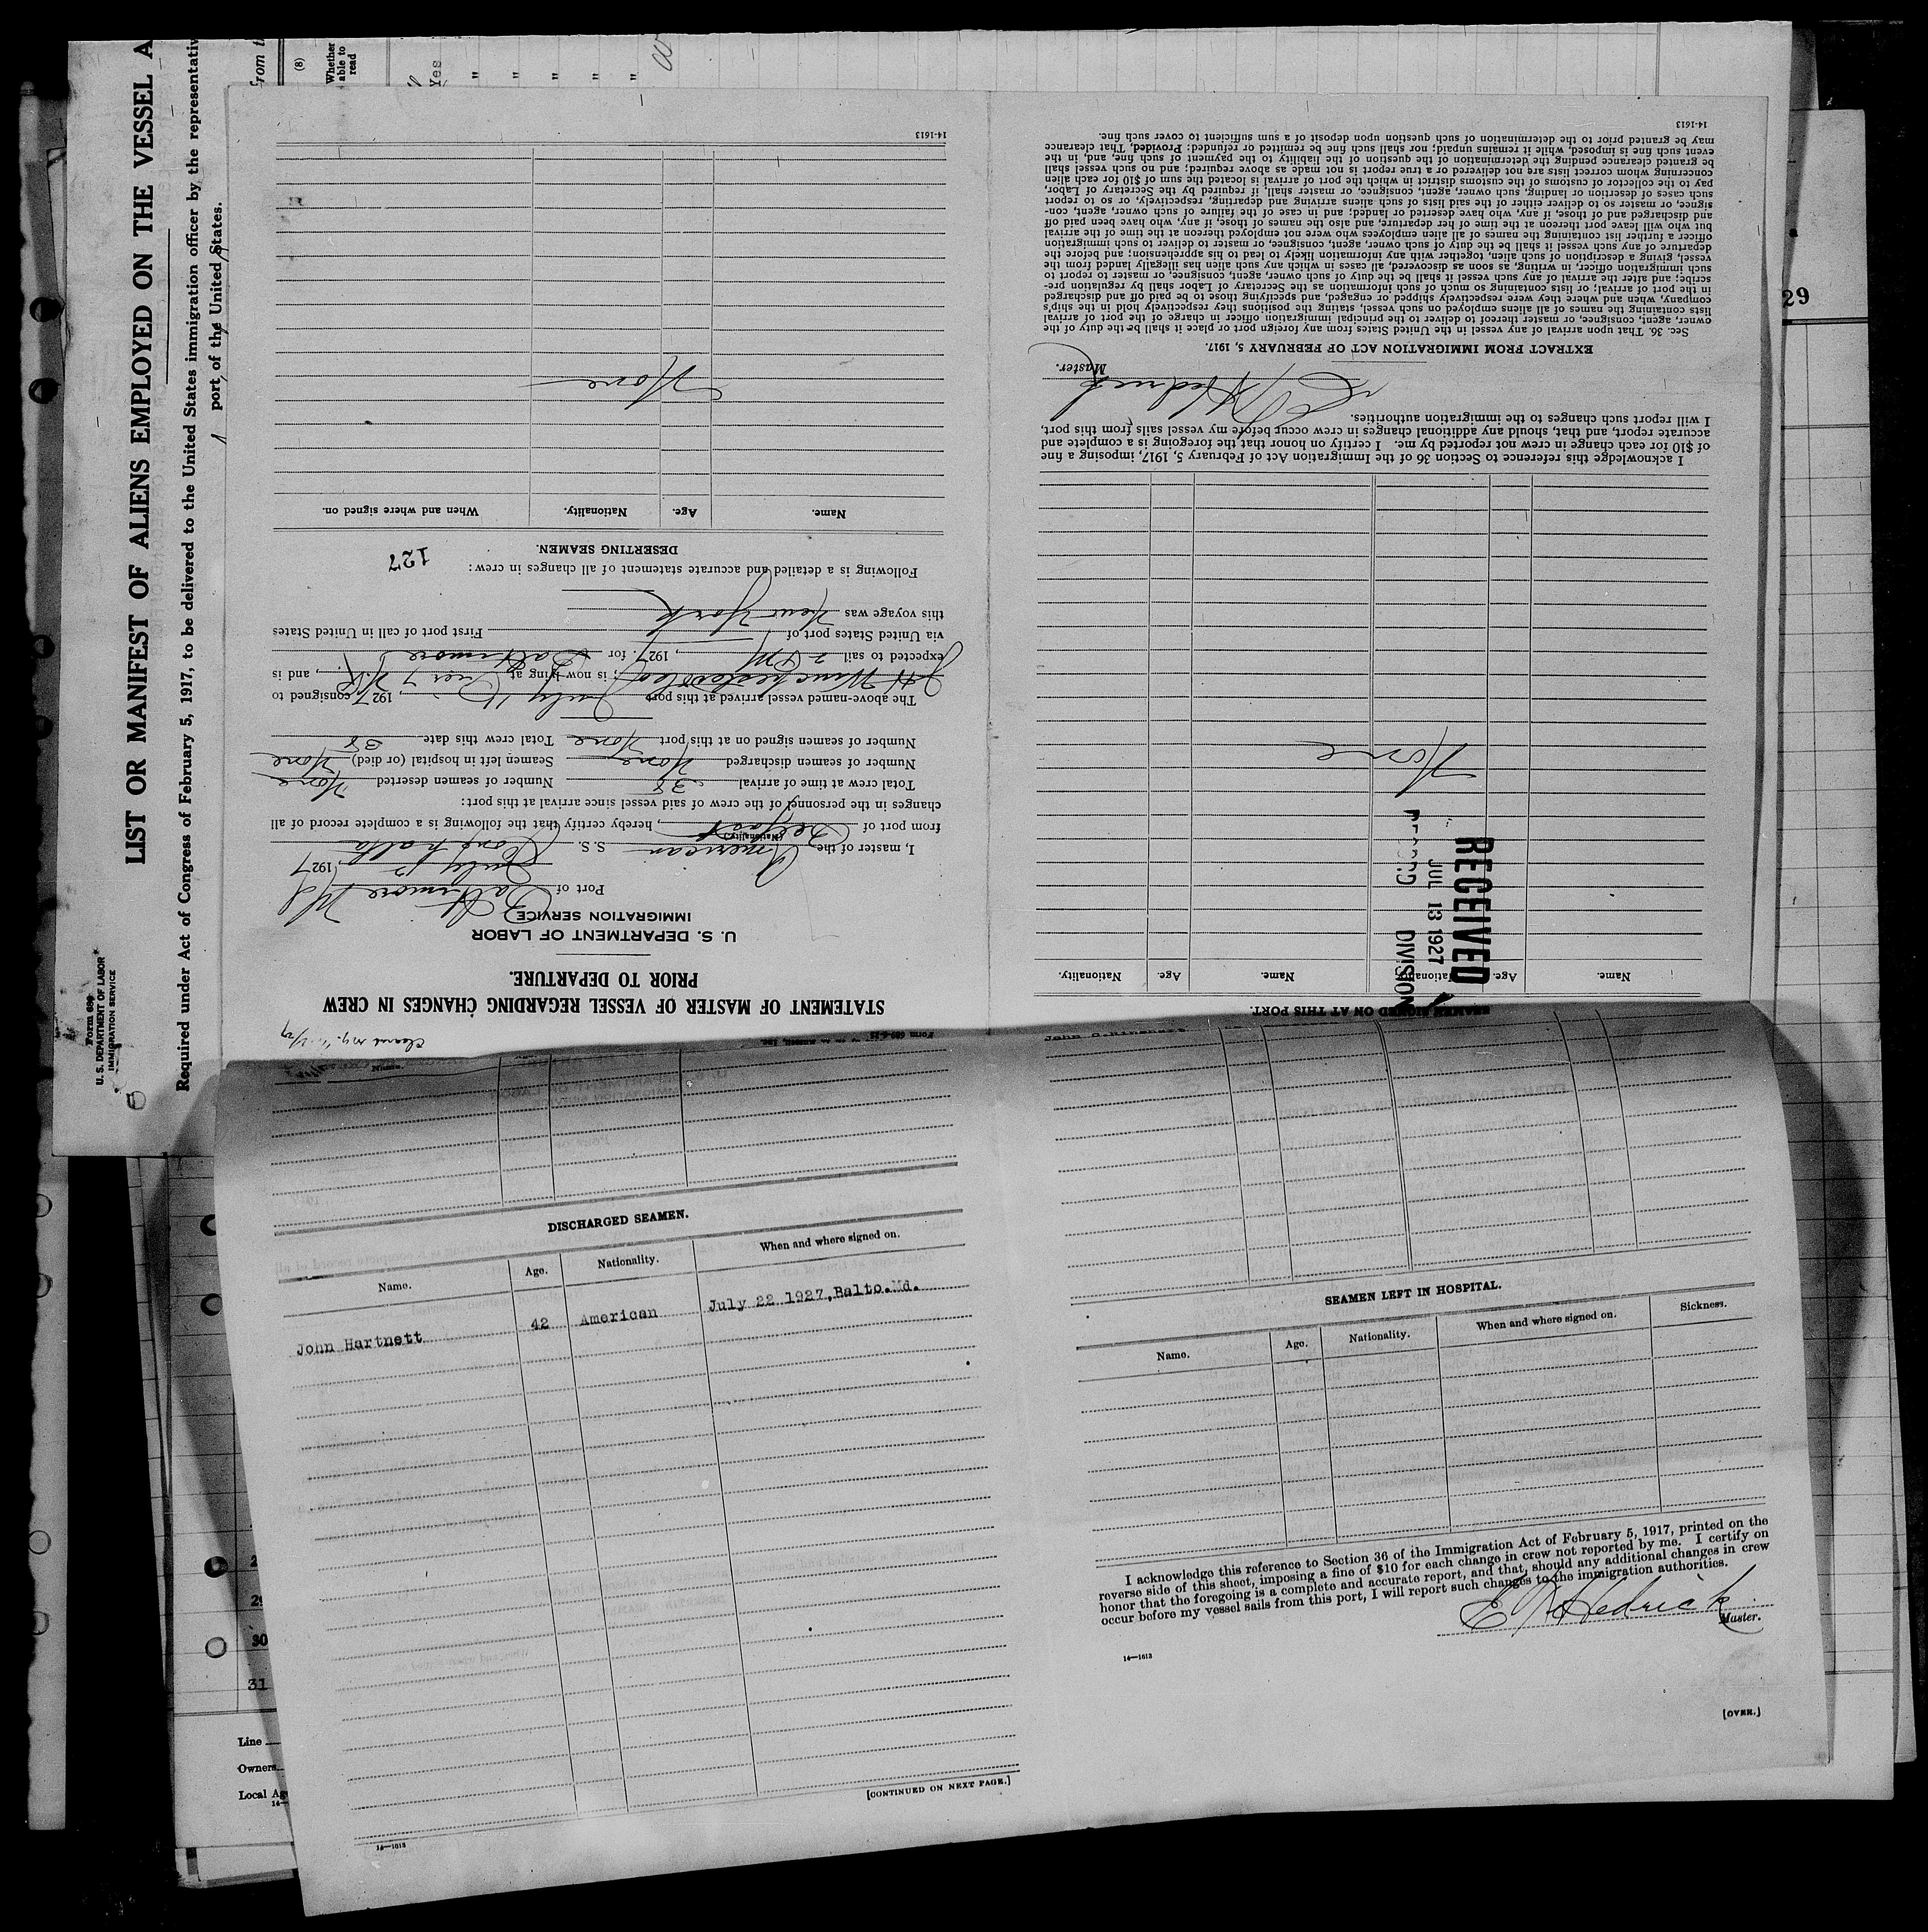 LIST OR MANIFEST OF ALIENS EMPLOYED ON THE VESSEL A
Required under Act of Congress of February 5, 1917, to be delivered to the United States immigration officer by the representativ
port of the United States.
Form 689
U. S. DEPARTMENT OF LABOR
IMMIGRATION SERVICE
from t
(8)
Whether
able to
read
Yes
"
"
"
"
"
29
STATEMENT OF MASTER OF VESSEL REGARDING CHANGES IN CREW
PRIOR TO DEPARTURE.
U. S. DEPARTMENT OF LABOR
IMMIGRATION SERVICE
Port of Baltimore Md
July 12, 1927
I, master of the American S. S.
(Nationality.)
from port of Belfast, hereby certify that the following is a complete record of all
changes in the personnel of the crew of said vessel since arrival at this port:
Total crew at time of arrival 38 Number of seamen deserted None
Number of seamen discharged None Seamen left in hospital (or died) None
Number of seamen signed on at this port None Total crew this date 38
The above-named vessel arrived at this port July 11, 1927, consigned to
J H Winchester & Co; is now lying at Pier 7, and is
expected to sail 2 PM, 1927. for Baltimore
via United States port of First port of call in United States
this voyage was New York
Following is a detailed and accurate statement of all changes in crew:
127
DESERTING SEAMEN.
Name. Age. Nationality. When and where signed on.
None
14-1613
SEAMEN SIGNED ON AT THIS PORT.
Name. Age. Nationality. Name. Age. Nationality.
RECEIVED
JUL 13 1927
RECORD DIVISION
None
I acknowledge this reference to Section 36 of the Immigration Act of February 5, 1917, imposing a fine
of $10 for each change in crew not reported by me. I certify on honor that the foregoing is a complete and
accurate report, and that, should any additional changes in crew occur before my vessel sails from this port,
I will report such changes to the immigration authorities.
E R Hedrick
Master.
EXTRACT FROM IMMIGRATION ACT OF FEBRUARY 5, 1917.
Sec. 36. That upon arrival of any vessel in the United States from any foreign port or place it shall be the duty of the
owner, agent, consignee, or master thereof to deliver to the principal immigration officer in charge of the port of arrival
lists containing the names of all aliens employed on such vessel, stating the positions they respectively hold in the ship's
company, when and where they were respectively shipped or engaged, and specifying those to be paid off and discharged
in the port of arrival; or lists containing so much of such information as the Secretary of Labor shall by regulation pre-
scribe; and after the arrival of any such vessel it shall be the duty of such owner, agent, consignee, or master to report to
such immigration officer, in writing, as soon as discovered, all cases in which any such alien has illegally landed from the
vessel, giving a description of such alien, together with any information likely to lead to his apprehension; and before the
departure of any such vessel it shall be the duty of such owner, agent, consignee, or master to deliver to such immigration
officer a further list containing the names of all alien employees who were not employed thereon at the time of the arrival
but who will leave port thereon at the time of her departure, and also the names of those, if any, who have been paid off
and discharged and of those, if any, who have deserted or landed; and in case of the failure of such owner, agent, con-
signee, or master so to deliver either of the said lists of such aliens arriving and departing, respectively, or so to report
such cases of desertion or landing, such owner, agent, consignee, or master shall, if required by the Secretary of Labor,
pay to the collector of customs of the customs district in which the port of arrival is located the sum of $10 for each alien
concerning whom correct lists are not delivered or a true report is not made as above required; and no such vessel shall
be granted clearance pending the determination of the question of the liability to the payment of such fine, and, in the
event such fine is imposed, while it remains unpaid; nor shall such fine be remitted or refunded: Provided, That clearance
may be granted prior to the determination of such question upon deposit of a sum sufficient to cover such fine.
14-1613
Name.
DISCHARGED SEAMEN.
Name. Age. Nationality. When and where signed on.
John Hartnett 42 American July 22 1927, Balto.Md.
[CONTINUED ON NEXT PAGE.]
14—1613
SEAMEN LEFT IN HOSPITAL.
Name. Age. Nationality. When and where signed on. Sickness.
I acknowledge this reference to Section 36 of the Immigration Act of February 5, 1917, printed on the
reverse side of this sheet, imposing a fine of $10 for each change in crew not reported by me. I certify on
honor that the foregoing is a complete and accurate report, and that, should any additional changes in crew
occur before my vessel sails from this port, I will report such changes to the immigration authorities.
E R Hedrick
Master.
14—1613
[OVER.]
29
30
31
Line
Owners
Local Ag
14—